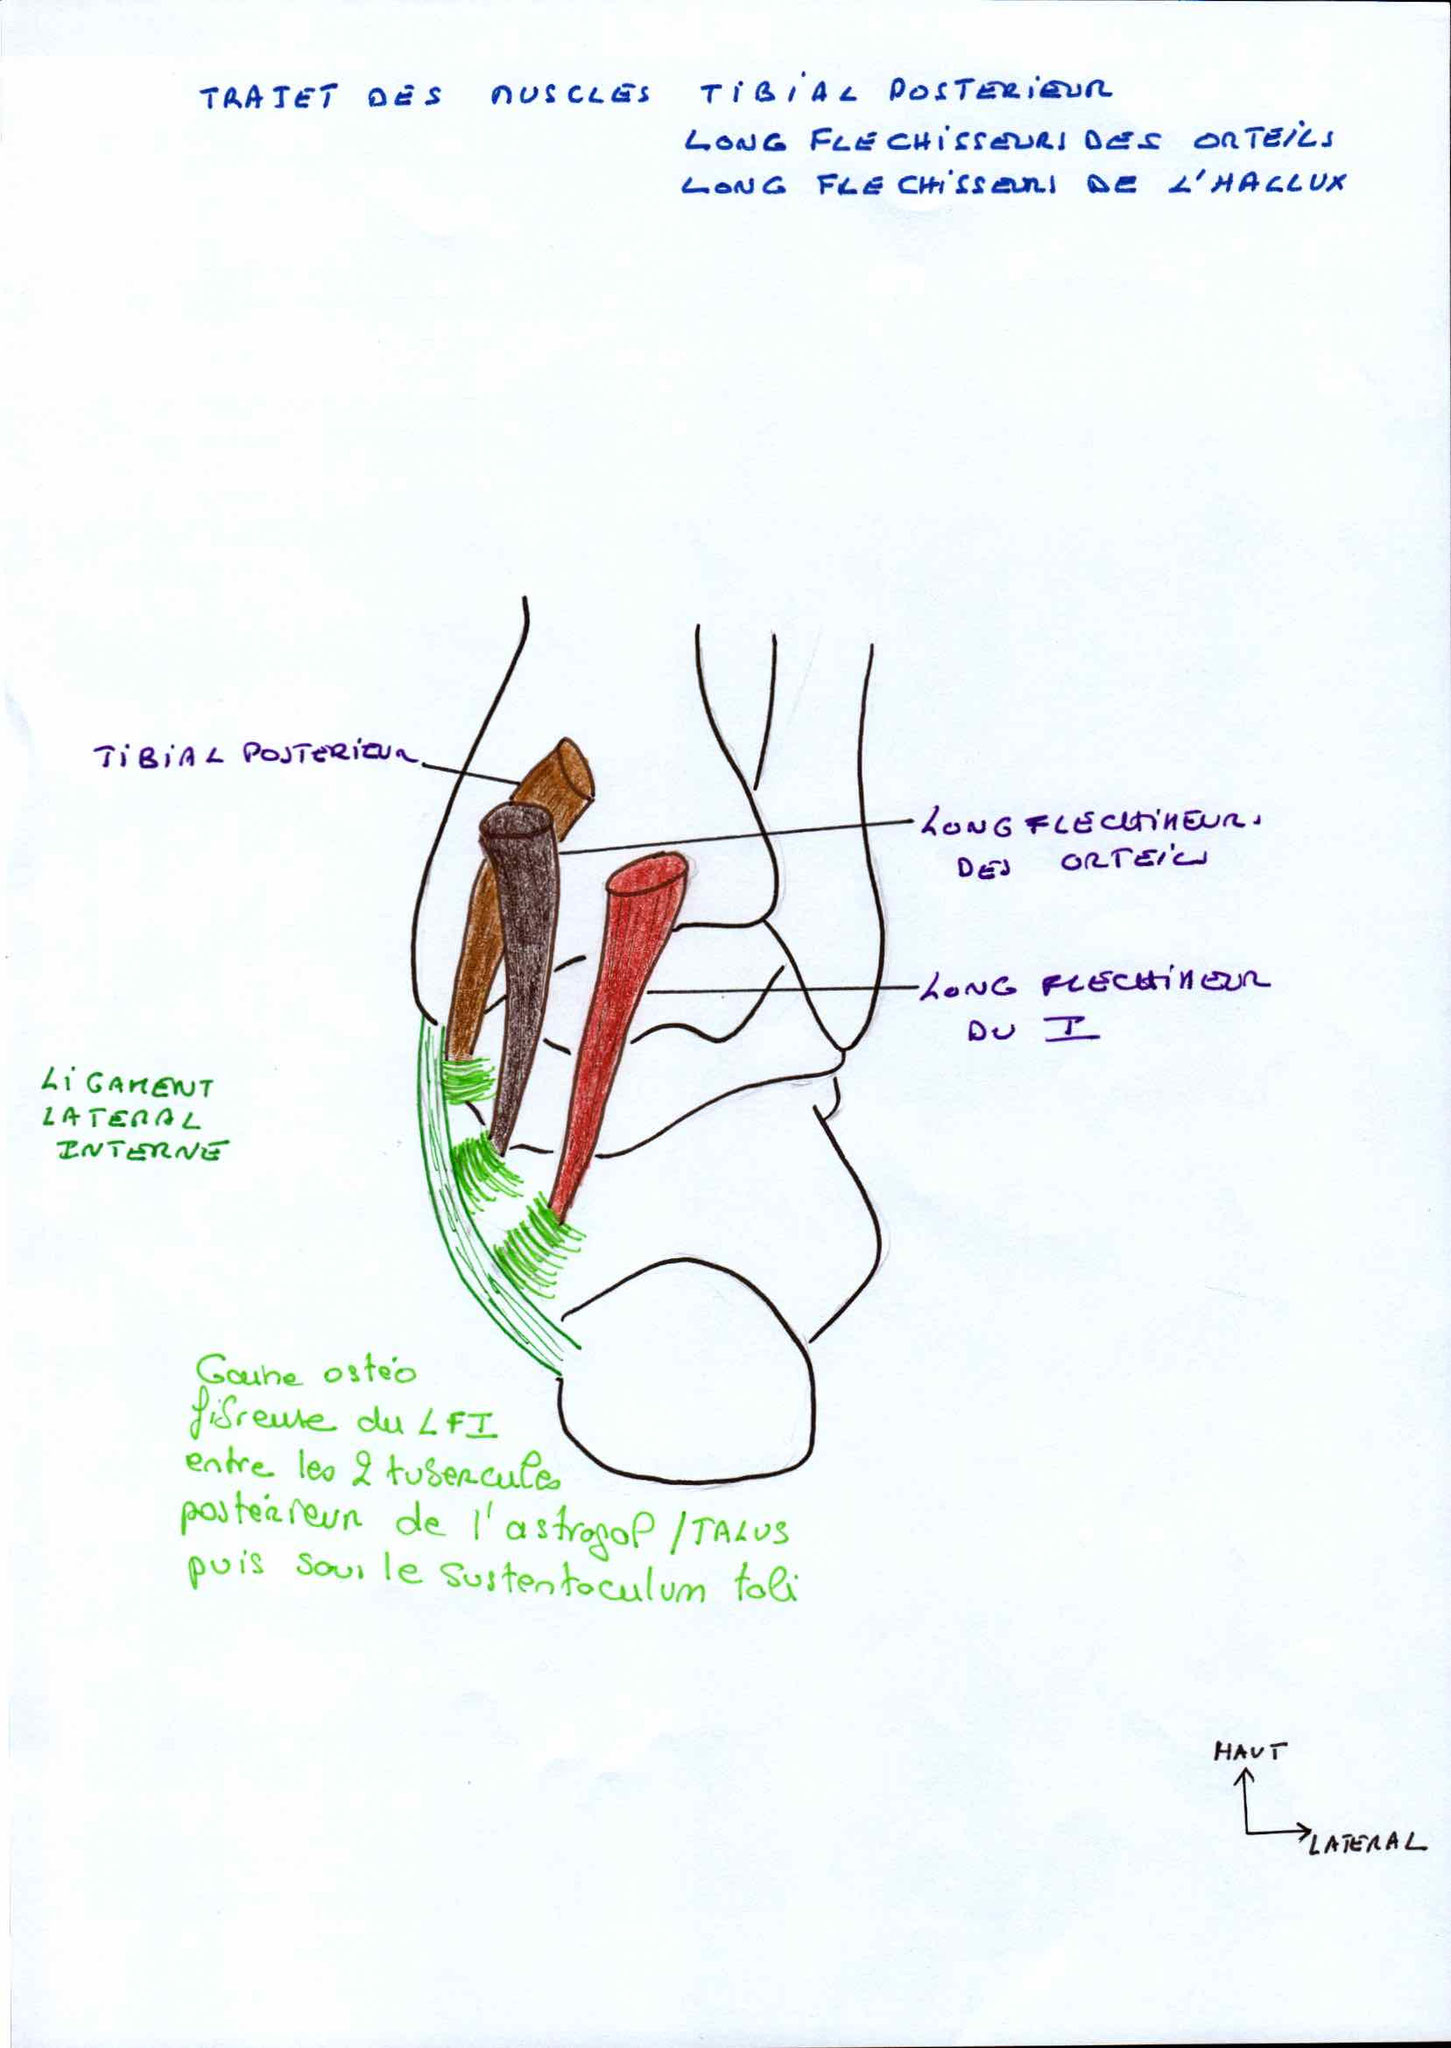 TRAJET DES MUSCLES TIBIAL POSTERIEUR
LONG FLECHISSEURS DES ORTEILS
LONG FLECHISSEURS DE L'HALLUX
TIBIAL POSTERIEUR
LONG FLECHISSEUR
DES ORTEILS
LONG FLECHISSEUR
DU I
LIGAMENT
LATERAL
INTERNE
Gaine ostéo
fibreuse du LFI
entre les 2 tubercules
postérieur de l'astragal /TALUS
puis sous le sustentaculum tali
HAUT
LATERAL